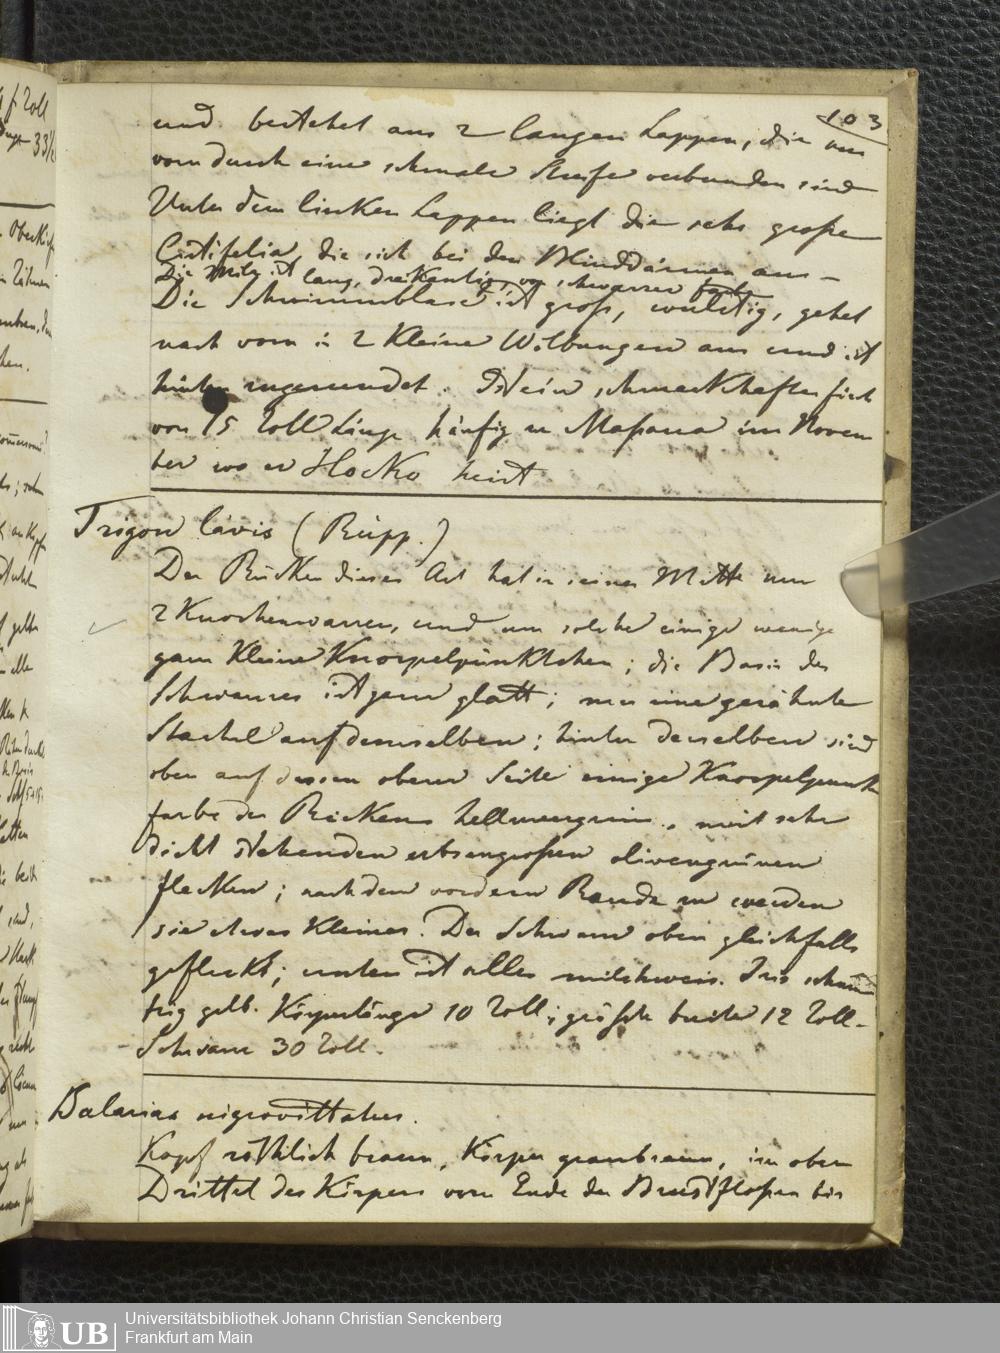 103
und bestehet aus 2 langen Lappen, die nur
vorn durch eine schmale Streife verbunden sind
Unter dem linken Lappen liegt die sehr große
die sich bei den Blinddärmen aus-
Die Milz ist lang, dreikantig, von schwarzer Farbe
Die Schwimmblase ist groß, wulstig, gehet
nach vorn in 2 kleine Wölbungen aus und ist
hinten zugerundet. Ist ein schmackhafter fisch
von 15 Zoll Länge häufig zu Maßaua im Novem
ber wo er Hocko heist
Trigon lävis (Rüpp.)
Der Rücken dieser Art hat in seiner Mitte nur
2 Knochenwarzen, und um solche einige wenige
ganz kleine Knorpelpünktchen; die Basis des
Schwanzes ist ganz glatt; nur eine gezähnte
Stachel auf demselben; hinter derselben sind
oben auf dessen obern Seite einige Knorpelpunkte
farbe des Rückens hellmeergrün, mit sehr
dicht stehenden erbsengroßen olivengrünen
flecken; nach dem vordern Rande zu werden
sie etwas kleiner. Der Schwanz oben gleichfalls
gefleckt; unten ist alles milchweis. Iris schmu
tzig gelb. Körperlänge 10 Zoll; größte breite 12 Zoll-
Schwanz 30 Zoll.
Salarias nigrovittatus.
Kopf röthlich braun, Körper graubraun, im obern
Drittel des Körpers vom Ende der Brustfloßen bis
Universitätsbibliothek Johann Christian Senckenberg
Frankfurt am Main
UB